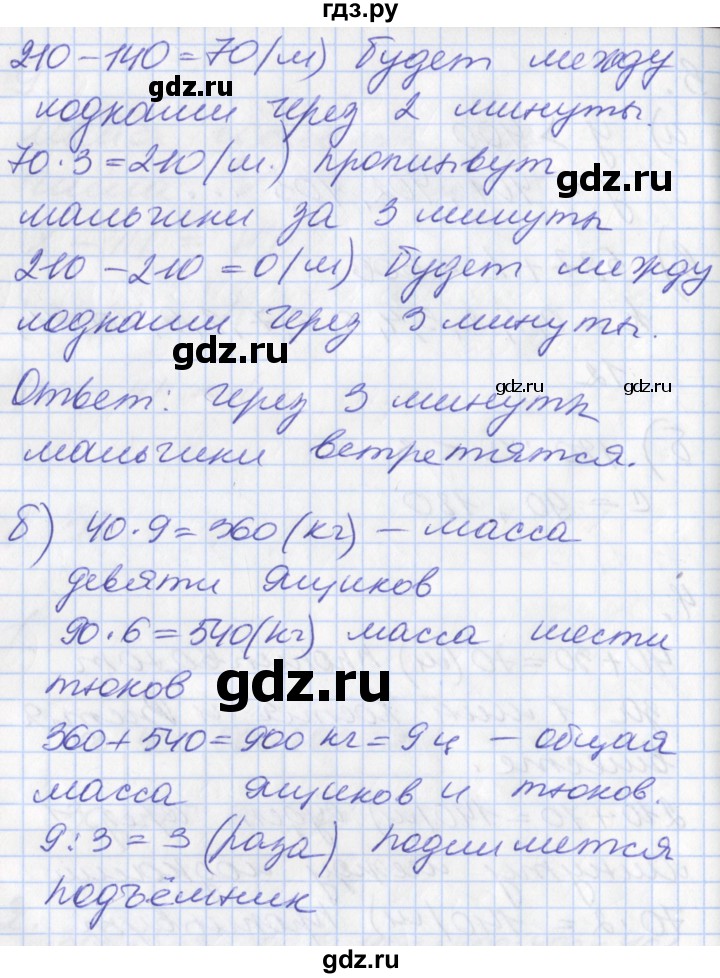 гдз.ру
210 - 140 = 70 (м) будет между
лодками через 2 минуты.
70 · 3 = 210 (м.) проплывут
мальчики за 3 минуты
210 - 210 = 0 (м) будет между
лодками через 3 минуты.
Ответ: через 3 минуты
мальчики встретятся.
б) 40 · 9 = 360 (кг) – масса
девяти ящиков
90 · 6 = 540 (кг) масса шести
тюков
360 + 540 = 900 кг = 9 ц – общая
масса ящиков и тюков.
9 : 3 = 3 (раза) поднимется
подъёмник
gdz.ru
gdz.ru
gdz.ru
gdz.ru
gdz.ru
gdz.ru
gdz.ru
gdz.ru